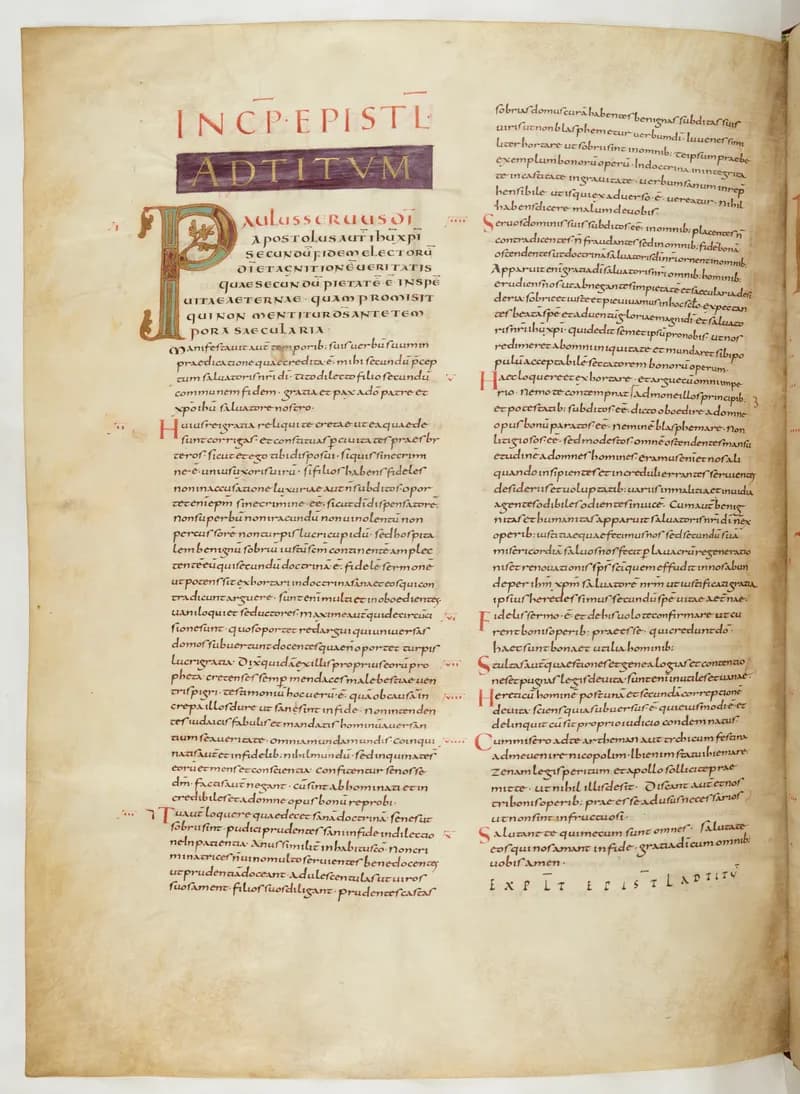 INCP · EPISTL ·
AD TITUM
PAULUS SERUUS DI
APOSTOLUS AUT IHU XPI
SECUNDU FIDEM ELECTORU
DI ET AGNITIONE UERITATIS
QUAE SECUNDU PIETATE E IN SPE
UITAE AETERNAE · QUAM PROMISIT
QUI NON MENTITUR DS ANTE TEM
PORA SAECULARIA ·
Manifestauit aut temporib: suis uerbu suum in
praedicatione quae credita e mihi secundu precep
tum saluatoris nri di · tito dilecto filio secundu
communem fidem · gratia et pax a do patre et
xpo ihu saluatore nostro ·
Huius rei gratia reliqui te cretae ut ea quae de
sunt corrigas · et constituas p ciuitates praesbr
teros · sicut et ego tibi disposui · si quis sine crim
ne e · unius uxoris uiru · filios habens fideles
non in accusatione luxuriae aut n subditos · opor
tet eni epm sine crimine ee · sicut di dispensatore ·
non superbu non iracundu non uinolentu non
percussore non turpis lucri cupidu · sed hospita
lem benignu sobriu iustu scm continente amplec
tente eu qui secundu doctrina e · fidele sermone
ut potens sit exhortari in doctrina sana et eos qui con
tradicunt arguere · sunt eni multi et inoboedientes
uaniloqui et seductores · maxime aut qui de circuci
sione sunt · quos oportet redargui qui uniuersas
domos subuertunt docentes quae n oportet turpis
lucri gratia · Dixit quida ex illis proprius eoru pro
pheta cretenses semp mendaces malae bestiae uen
tris pigri · testimoniu hoc ueru e · qua ob causa in
crepa illos dure ut sani sint in fide · non intenden
tes iudaicis fabulis et mandatis hominu auersan
tium se a ueritate · omnia munda mundis · coinqui
natis aut et infidelib: nihil mundu · sed inquinatae s
eoru et mens et conscientia · confitentur se nosse
dm · factis aut negant · cu sint abhominati et in
credibiles et ad omne opus bonu reprobi ·
Tu aut loquere quae decet sana doctrina · senes ut
sobrii sint · pudici prudentes sani in fide in dilectio
ne in patientia · Anus similit in habitu sco · non cri
minatrices n uino multo seruientes bene docentes
ut prudentia doceant · adulescentulas ut uiros
suos ament · filios suos diligant · prudentes castas
sobrias domus cura habentes benignas subditas suis
uiris ut non blasphemetur uerbum di · Iuuenes simi
liter hortare ut sobrii sint in omnib: te ipsum praebe
exemplum bonoru operu · In doctrina in integrita
te in castitate in grauitate · uerbum sanum inrep
hensibile · ut is qui ex aduerso e · uereatur · nihil
habens dicere malum de uobis ·
Seruos dominis suis subditos ee · in omnib: placentes n
contradicentes · n fraudantes sed in omnib: fide bona
ostendentes ut doctrina saluatoris di nri ornent in omnib:
Apparuit eni gratia di saluatoris nri omnib: hominib:
erudiens nos ut abnegantes impietate et saecularia desi
deria sobrie et iuste et pie uiuamus in hoc sclo expectan
tes beata spe et aduentu gloriae magni di et saluato
ris nri ihu xpi · qui dedit semet ipsu pro nobis · ut nos
redimeret ab omni iniquitate et mundaret sibi po
pulu acceptabile sectatorem bonoru operum ·
Haec loquere et exhortare · et argue cu omni impe
rio · Nemo te contemnat · admone illos principib:
et potestatib: subditos ee · dicto oboedire ad omne
opus bonu paratos ee · nemine blasphemare · non
litigiosos ee · sed modestos · omne ostendentes mansu
etudine ad omnes homines · eramus eni et nos ali
quando insipientes et increduli errantes seruientes
desideriis et uoluptatib: uariis in malitia et inuidia
agentes odibiles odientes inuice · Cum aut benig
nitas et humanitas apparuit saluatoris nri di n ex
operib: iustitiae quae fecimus nos sed secundu sua
misericordia saluos nos fecit p lauacru regeneratio
nis et renouationis sps sci quem effudit in nos abun
de per ihm xpm saluatore nrm ut iustificati gratia
ipsius heredes simus secundu spe uitae aetnae ·
Fidelis sermo · e · et de his uolo te confirmare · ut cu
rent bonis operib: praeesse · qui credunt do ·
haec sunt bona et utilia hominib:
Stultas aut quaestiones et genealogias et contentio
nes et pugnas legis deuita · sunt eni inutiles et uanae ·
Hereticu homine post una et secunda correptione
deuita · sciens quia subuersus e · qui eiusmodi e · et
delinquit cu sit proprio iudicio condemnatus ·
Cum misero ad te artheman aut tychicum festina
ad me uenire nicopolim · Ibi eni statui hiemare
Zenam legis peritum et apollo sollicite prae
mitte · ut nihil illis desit · Discant aut et nos
tri bonis operib: praeesse ad usus necessarios
ut non sint infructuosi ·
Salutant te qui mecum sunt omnes · Saluta te
eos qui nos amant in fide · gratia di cum omnib:
uobis amen ·
EXPLT EPISTL AD TITU